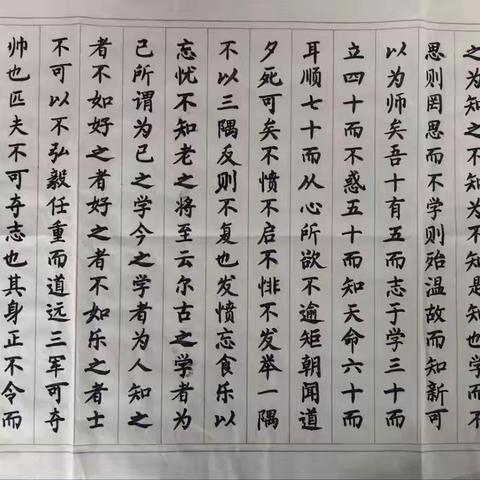 之为知之不知为不知是知也学而不
思则罔思而不学则殆温故而知新可
以为师矣吾十有五而志于学三十而
立四十而不惑五十而知天命六十而
耳顺七十而从心所欲不逾矩朝闻道
夕死可矣不愤不启不悱不发举一隅
不以三隅反则不复也发愤忘食乐以
忘忧不知老之将至云尔古之学者为
已所谓为已之学今之学者为人知之
者不如好之者好之者不如乐之者士
不可以不弘毅任重而道远三军可夺
帅也匹夫不可夺志也其身正不令而